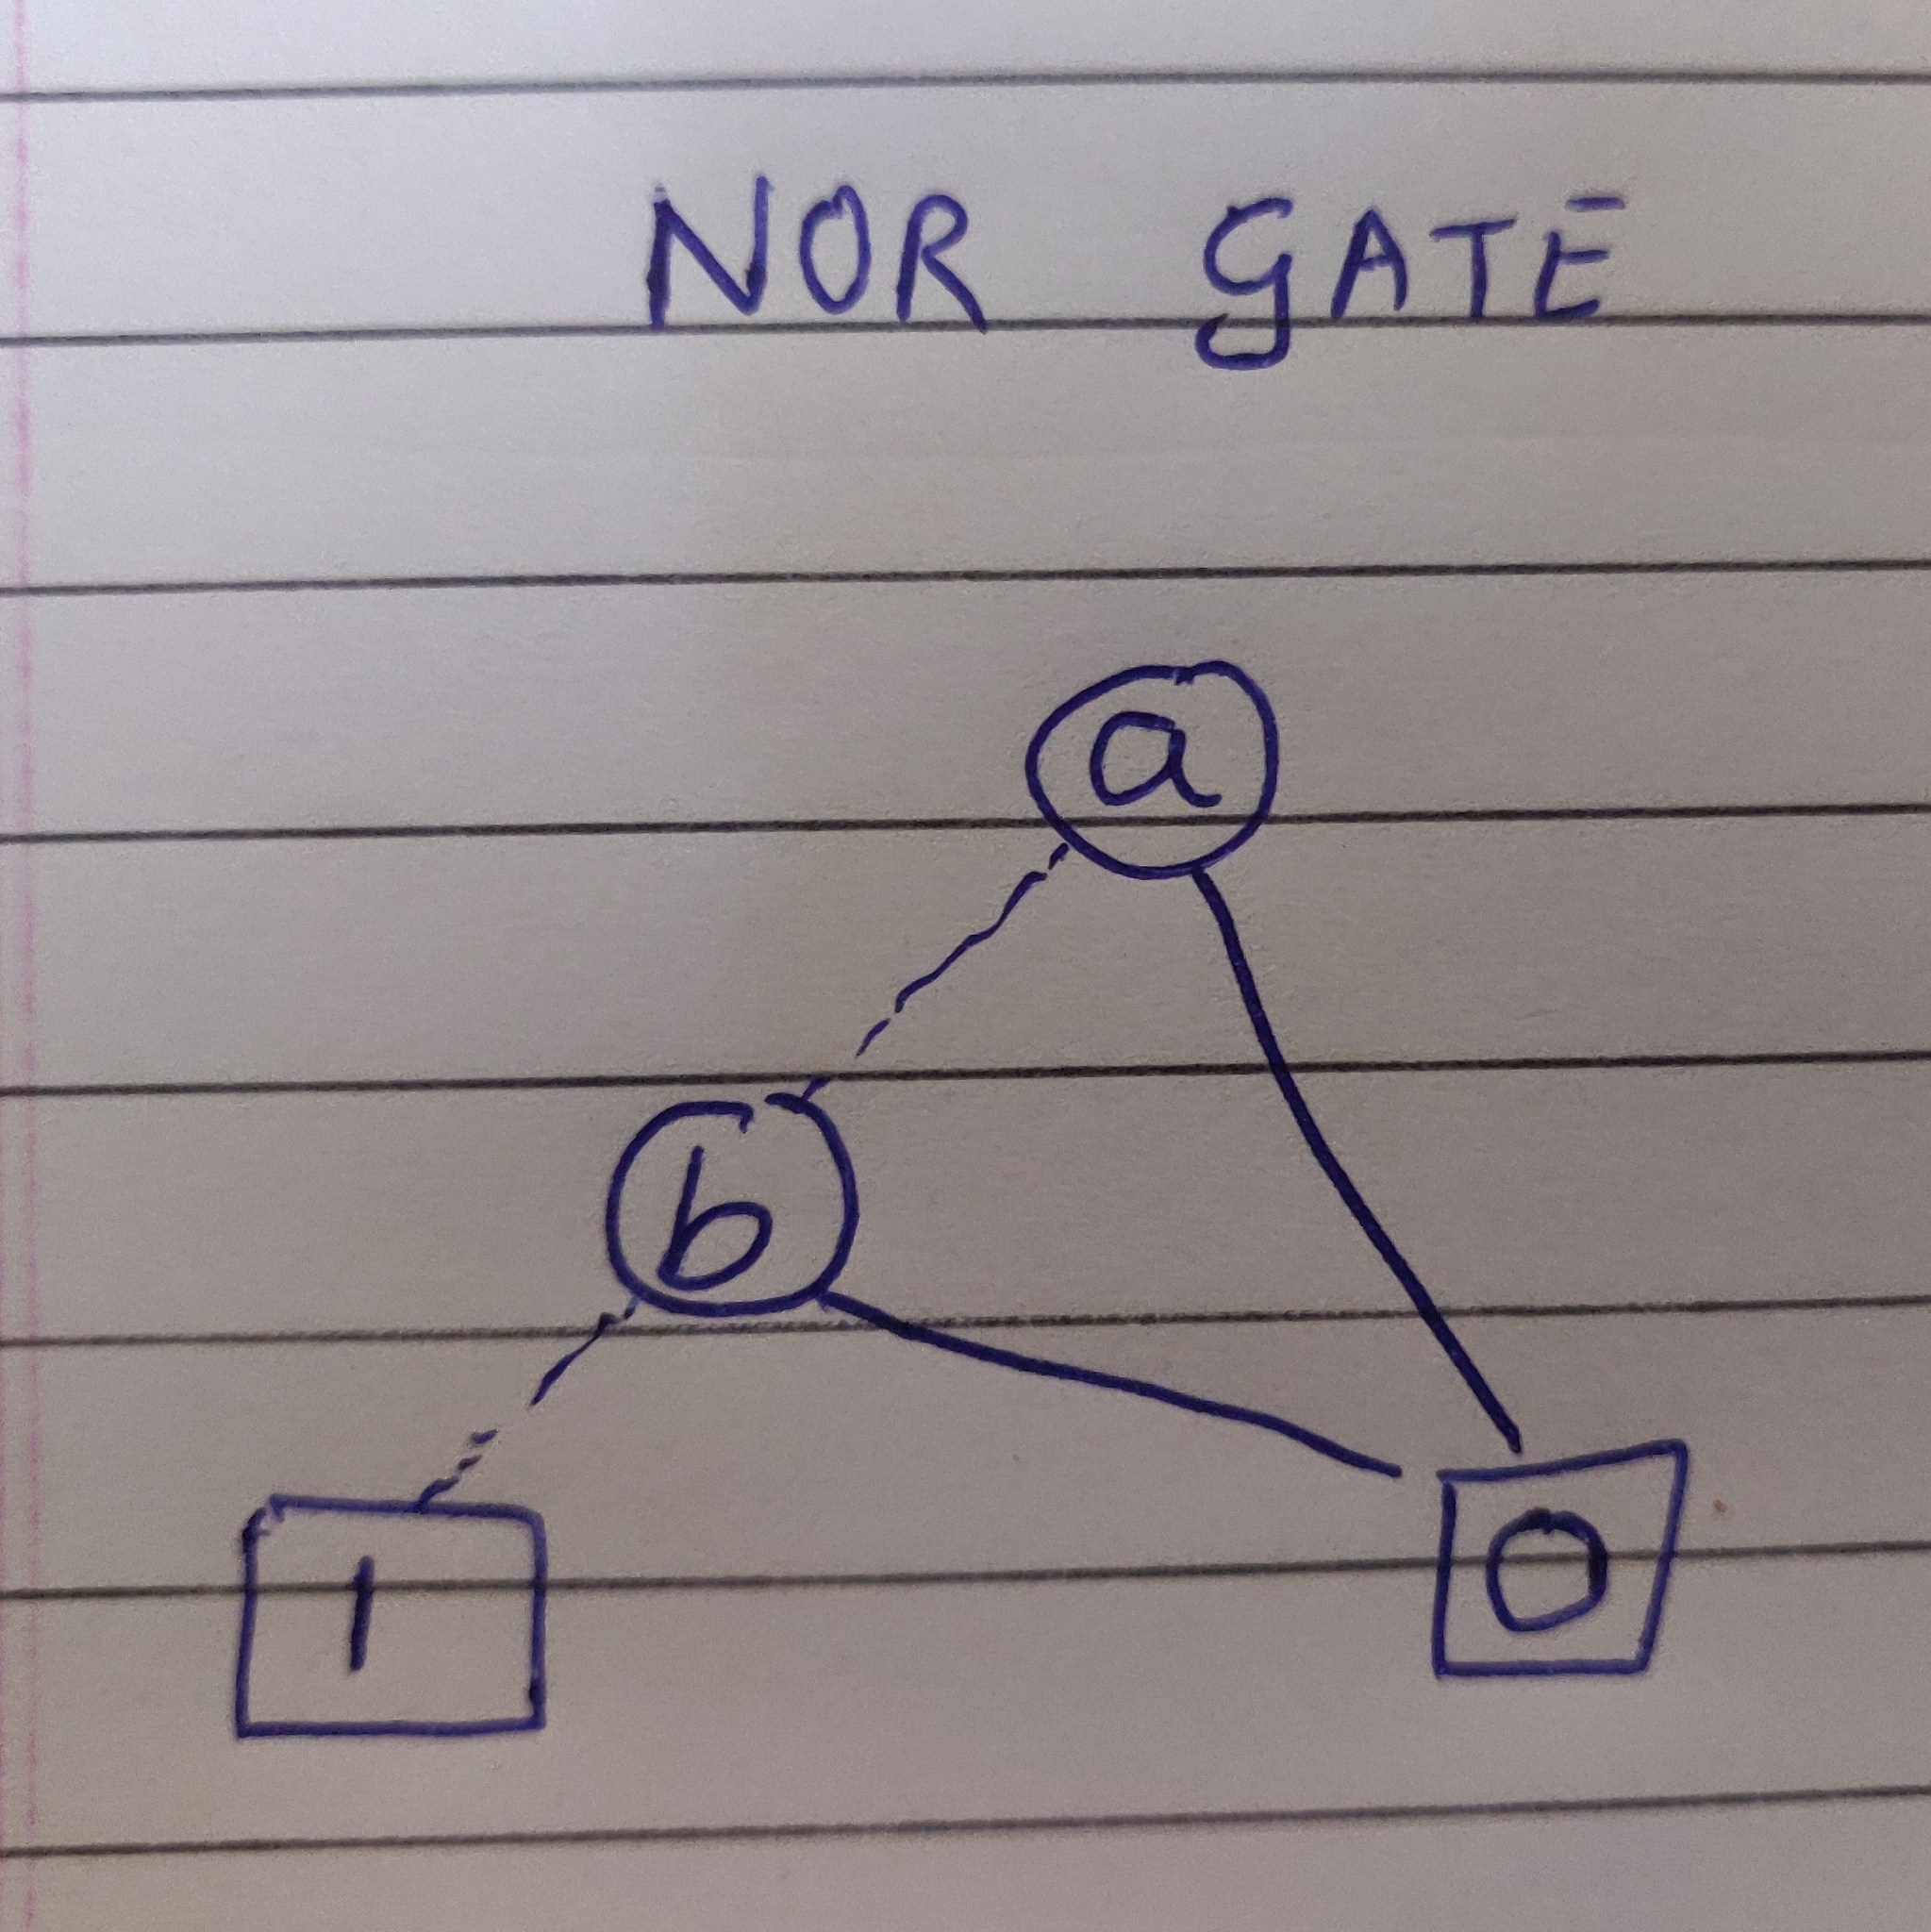 NOR GATE
a
b
1 0